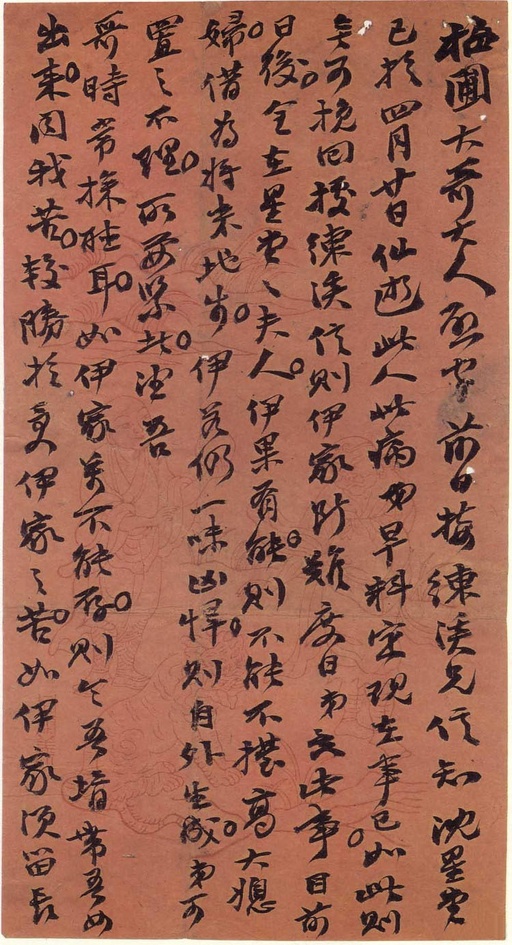 梅圃大哥大人啟安前日接練溪兄信知沈星
已於四月廿日仙逝此人此病弟早料定現在事已如此則
無可挽回接練溪信則伊家防難度日弟云此事目前
日後全在星之夫人伊果有能則不能不攪高大媳
婦借為將來地步伊若仍一味凶悍則自外生成弟可
置之不理所要緊者吾
哥時常採聽耳如伊家萬不能存則令吾壻帶吾女
出來同我苦較勝於受伊家之苦如伊家須留長